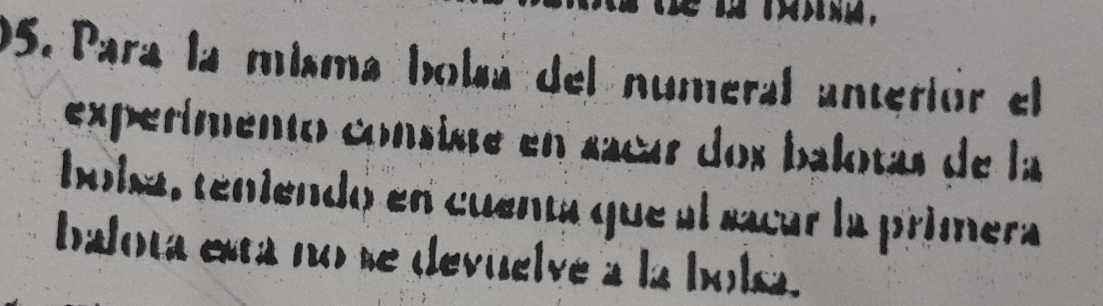 de la bolsa.
05. Para la misma bolsa del numeral anterior el
experimento consiste en sacar dos balotas de la
bolsa, teniendo en cuenta que al sacar la primera
balota esta no se devuelve a la bolsa.